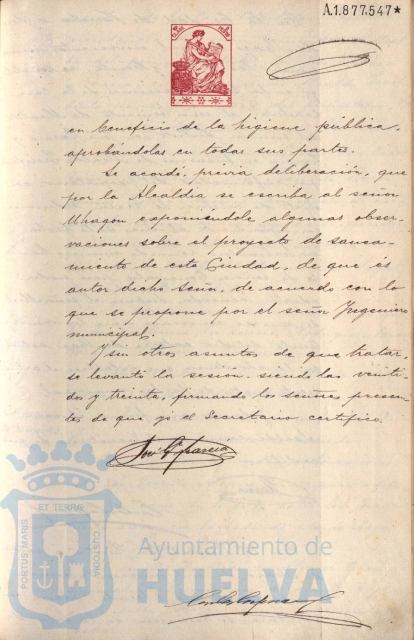 A.1.877.547*
en beneficio de la higiene pública,
aprobándolas en todas sus partes.
Se acordó, previa deliberación, que
por la Alcaldía se escriba al señor
Uhagon exponiendole algunas obser-
vaciones sobre el proyecto de sanea-
miento de esta Ciudad, de que és
autor dicho Señor, de acuerdo con lo
que se propone por el señor Ingeniero
municipal.
Y sin otros asuntos de que tratar,
se levantó la sesión, siendo las veinti-
dos y treinta, firmando los señores presen-
tes de que yo el Secretario certifico.
García
PORTUS MARIS
ET TERRÆ
CUSTODIA
Ayuntamiento de
HUELVA